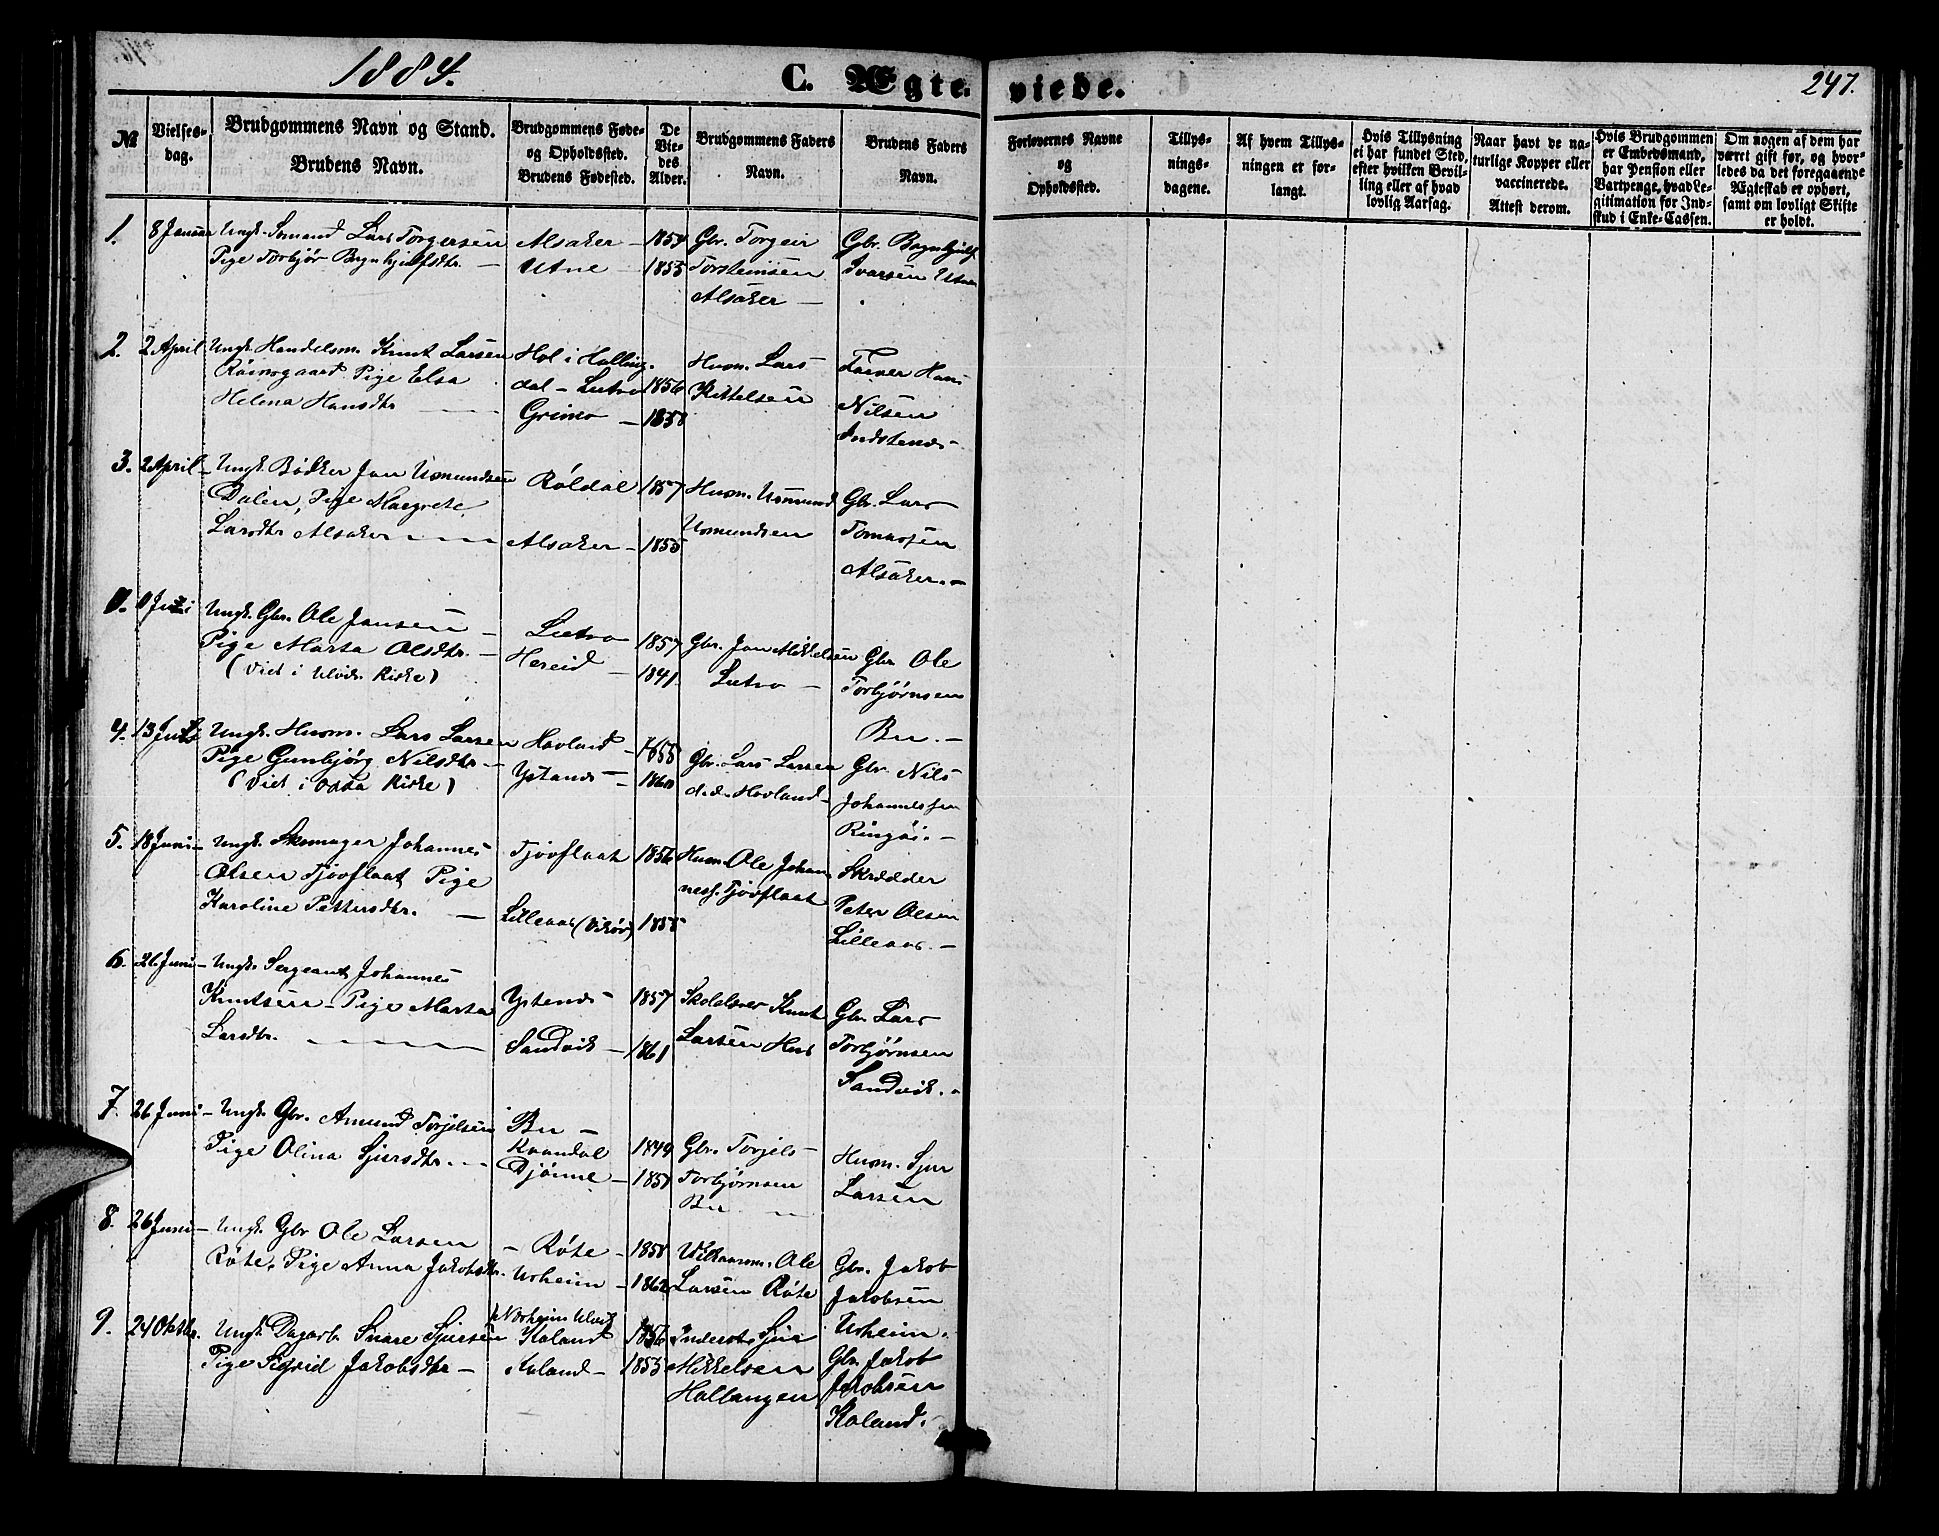 1884.
C. Ægte-
viede.
247.
№
Vielses-
dag.
Brudgommens Navn og Stand.
Brudens Navn.
Brudgommens Føde-
og Opholdssted.
Brudens Fødested.
De
Vie-
des
Alder.
Brudgommens Faders
Navn.
Brudens Faders
Navn.
Forlovernes Navne
og
Opholdssted.
Tillys-
nings-
dagene.
Af hvem Tillys-
ningen er for-
langt.
Hvis Tillysning
ei har fundet Sted,
efter hvilken Bevil-
ling eller af hvad
lovlig Aarsag.
Naar havt de na-
turlige Kopper eller
vaccinerede.
Attest derom.
Hvis Brudgommen
er Embedsmand,
har Pension eller
Vartpenge, hvad Le-
gitimation for Ind-
skud i Enke-Cassen.
Om nogen af dem har
været gift før, og hvor-
ledes da det foregaaende
Ægteskab er ophørt,
samt om lovligt Skifte
er holdt.
1. 8 Januar Ungk. Sømand Lars Torgersen Alsaker – 1854 Gbr. Torgeir Gbr. Brynhjulf
Pige Torbjør Brynhjulfsdtr. — Utne 1855 Torsteinsen Ivarsen Utne
Alsaker —
2. 2 April Ungk. Handelsm. Knut Larsen Hol i Halling- Husm. Lars Farver Hans
Pige Elsa dal – Lutro 1856 Kittelsen Nilsen
Helena Hansdtr — Grimo – 1858 Indstenes –
3. 2 April – Ungk. Bødker Jon Usmundsen Røldal 1857 Husm. Usmund Gbr. Lars
Dalen, Pige Margrete Usmundsen Tomassen
Larsdtr Alsaker — Alsaker – 1855 Alsaker. –
Ungk. Gbr. Ole Jansen – Lutro 1857 Gbr. Jan Mikkelsen Gbr Ole
Pige Marta Olsdtr. – Hereid – 1841. Lutro – Torbjørnsen
(Viet i Ulvik Kirke) Bu. –
4. 13 Ungk. Husm. Lars Larsen Hovland – 1855 Gbr. Lars Larsen Gbr Nils
Pige Gunbjørg Nilsdtr – Ystanes – 1860 d. æ. Hovland – Johannessen
(Viet i Odda Kirke) Ringøi. –
5. 18 Juni – Ungk. Skomager Johannes Tjoflaat 1856 Husm. Ole Johan- Skrædder
Olsen Tjoflaat Pige ness. Tjoflaat Peter Olsen
Karoline Pettersdtr. — Lilleaas (Vikør) 1855 Lilleaas. –
6. 26 Juni – Ungk. Sergeant Johannes
Knutsen – Pige Marta Ystenes – 1857 Skolelærer Knut Gbr. Lars
Larsdtr. — Sandvik – 1861 Larsen Torbjørnsen
Sandvik. –
7. 26 Juni – Ungk. Gbr. Amund Torjelsen Bu –
Pige Olina Sjursdtr. – Kvandal 1849 Gbr. Torjels – Husm. Sjur
Djønne – 1858 Torbjørnsen Larsen
Bu —
8. 26 Juni – Ungk. Gbr Ole Larsen – Røte – 1858 Vilkaarsm. Ole Gbr. Jakob
Røte, Pige Anna Jakobsdtr. Urheim – 1862 Larsen Røte Jakobsen
Urheim.
9. 24 Oktbr. Ungk. Dagarb. Snare Sjursen Norheim Ulvik
Koland 1856 Inderst Sjur Gbr. Jakob
Pige Sigrid Jakobsdtr – Koland – 1855 Mikkelsen Jakobsen
Hallangen Koland.